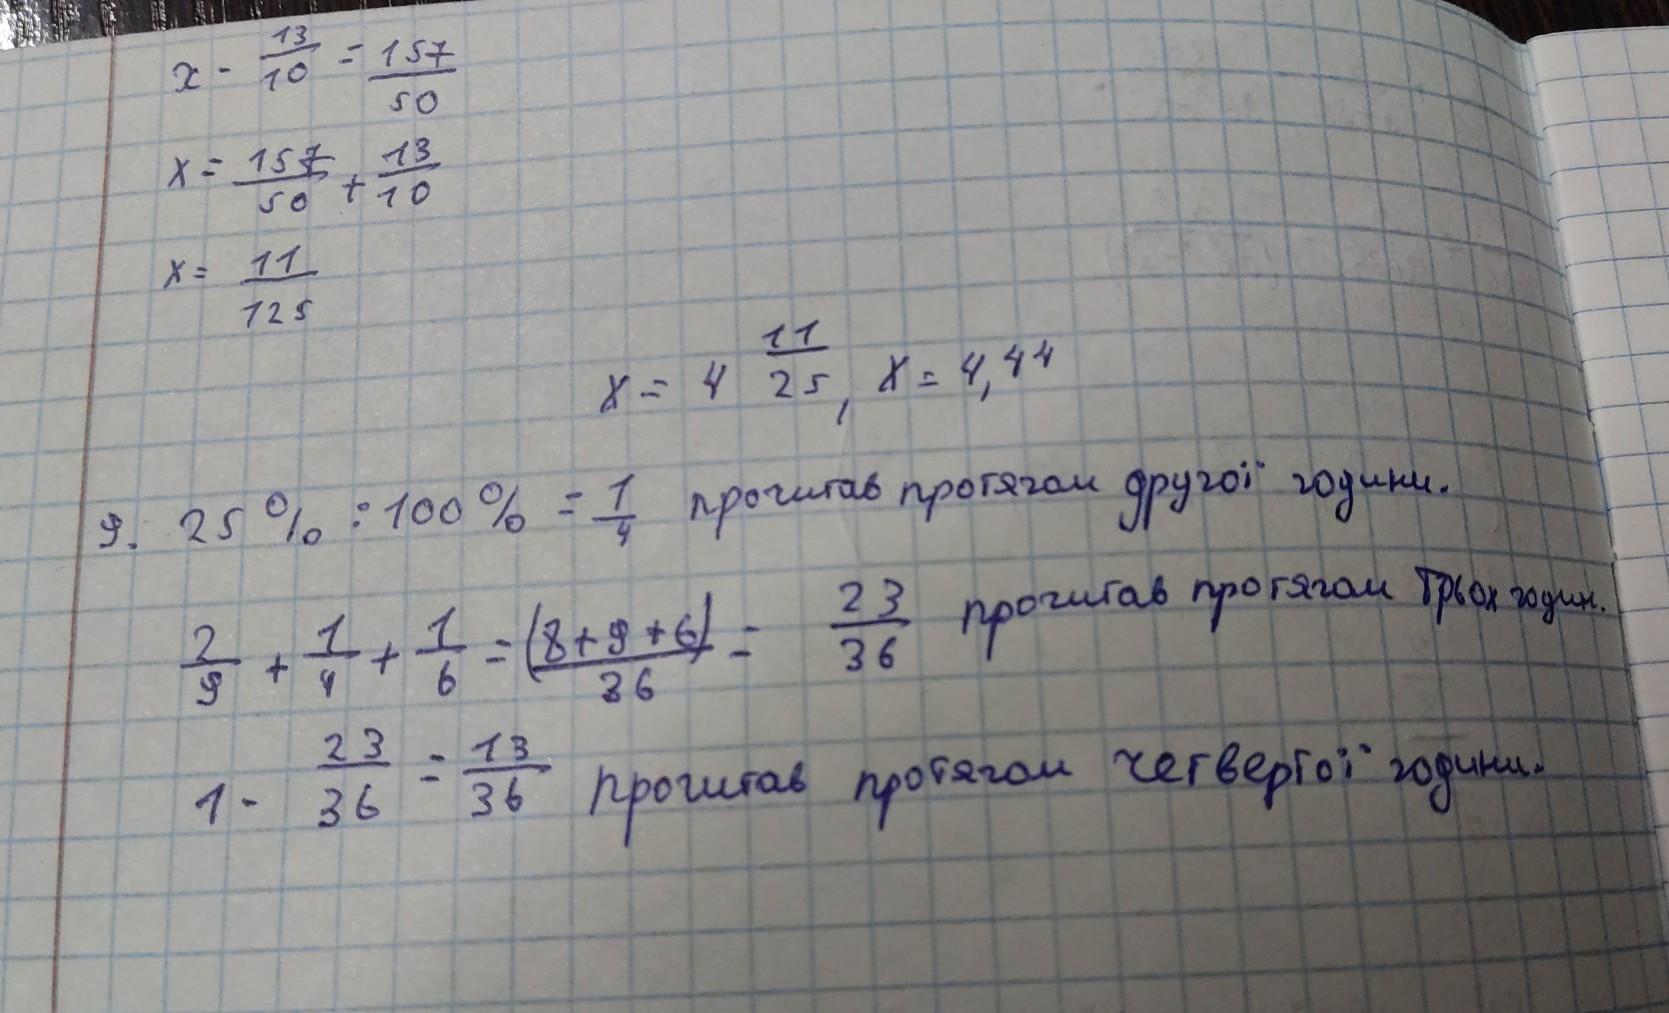 x - 13/10 = 157/50
x = 157/50 + 13/10
x = 11/125
x = 4 11/25, x = 4,44
9. 25% : 100% = 1/4 прочитав протягом другої години.
2/9 + 1/4 + 1/6 = (8+9+6)/36 = 23/36 прочитав протягом трьох годин.
1 - 23/36 = 13/36 прочитав протягом четвертої години.